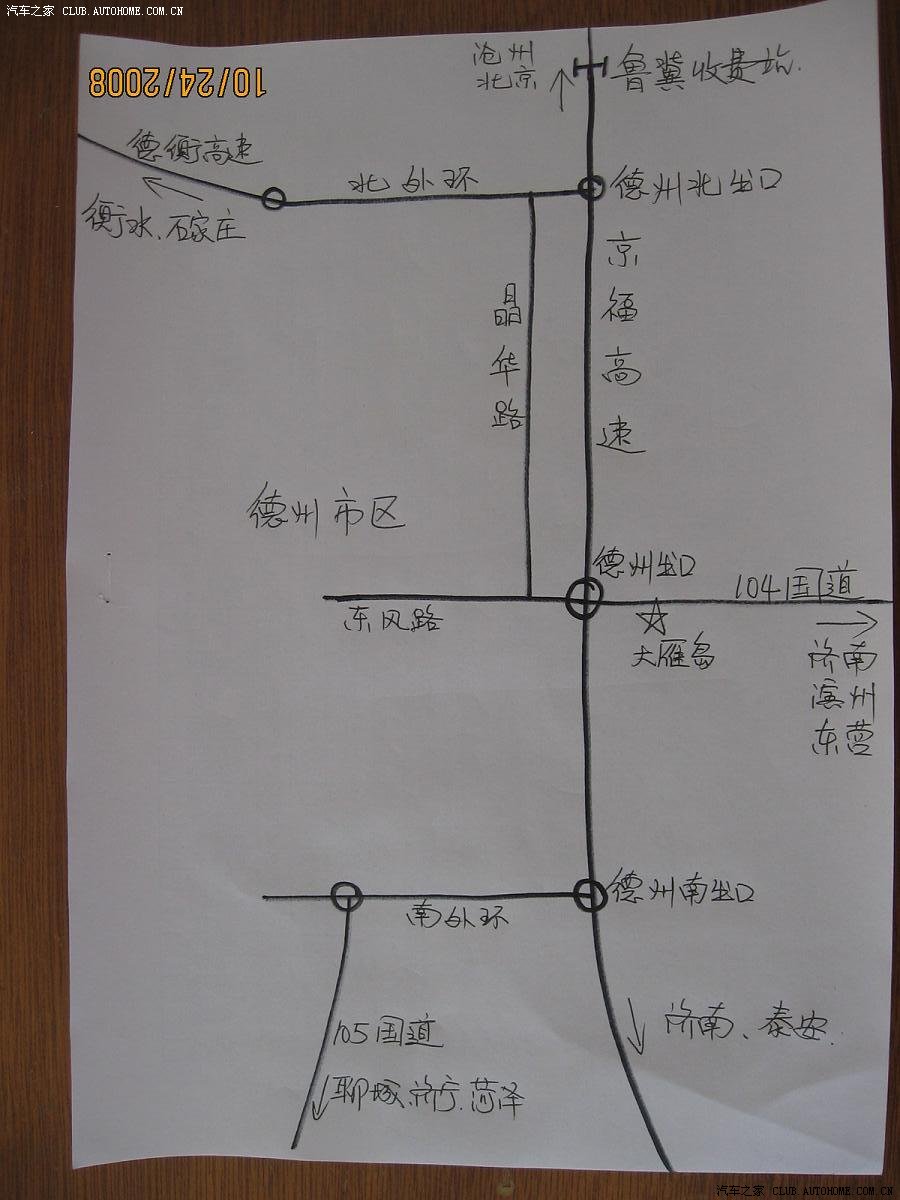 汽车之家 CLUB.AUTOHOME.COM.CN
10/24/2008
沧州
北京
鲁冀收费站.
德衡高速
衡水、石家庄
北外环
德州北出口
京福高速
晶华路
德州市区
德州出口
104国道
东风路
大雁岛
济南
滨州
东营
德州南出口
南外环
105国道
聊城.济宁.菏泽
济南、泰安.
汽车之家 CLUB.AUTOHOME.COM.CN